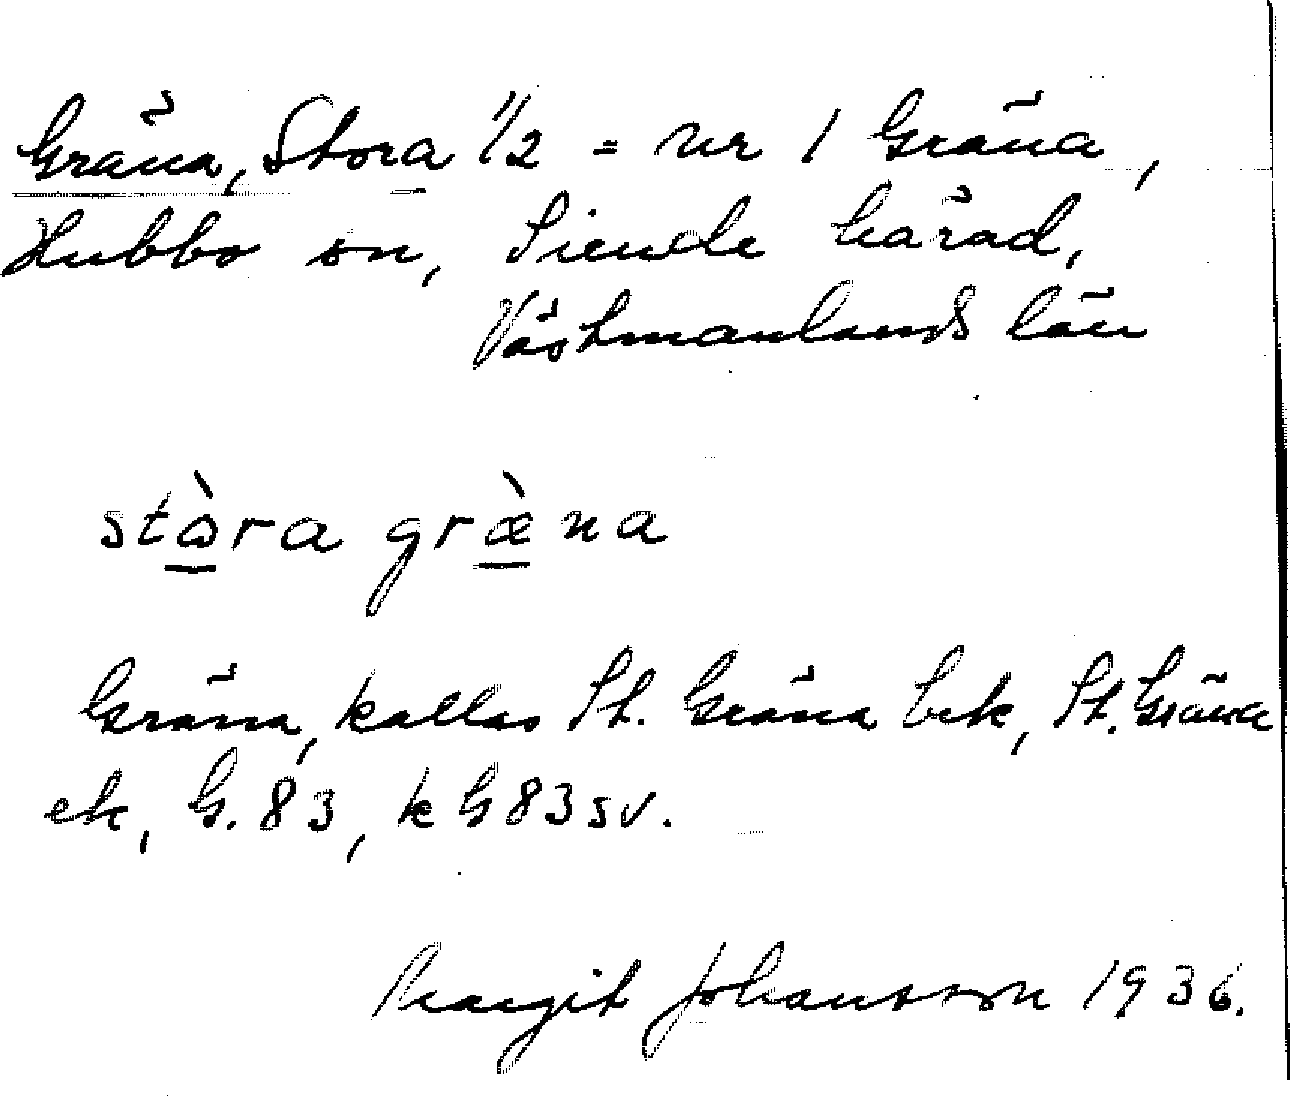 Gräna, Stora 1/2 = nr 1 Gräna,
Hubbo sn, Siende härad,
Västmanlands län
stὼra græ̀na
Gräna, kallas St. Gräna bek, St. Gräna
ek, G. 83, k G 83 sv.
Margit Johansson 1936.